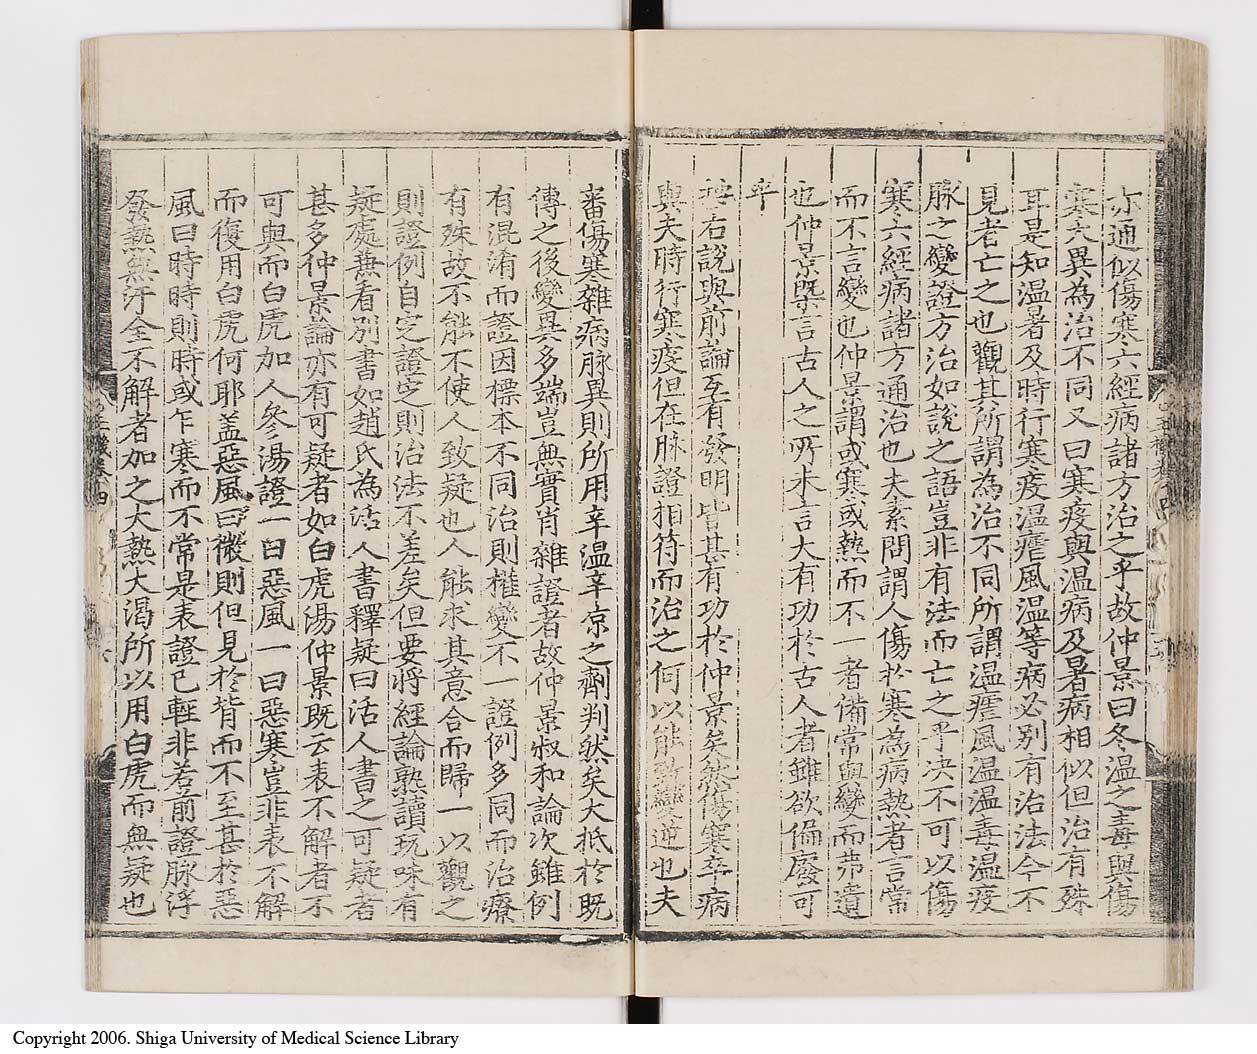 亦通似傷寒六經病諸方治之乎故仲景曰冬温之毒與傷
寒大異為治不同又曰寒疫與温病及暑病相似但治有殊
耳是知温暑及時行寒疫温瘧風温等病必別有治法今不
見者亡之也觀其所謂為治不同所謂温瘧風温温毒温疫
脉之變證方治如說之語豈非有法而亡之乎决不可以傷
寒六經病諸方通治也夫素問謂人傷於寒為病熱者言常
而不言變也仲景謂或寒或熱而不一者備常與變而弗遺
也仲景旣言古人之所未言大有功於古人者雖欲偏廢可
乎
按右說與前論互有發明皆甚有功於仲景矣然傷寒卒病
與夫時行寒疫但在脉證相符而治之何以能致變逆也夫
審傷寒雜病脉異則所用辛温辛凉之劑判然矣大抵於旣
傳之後變異多端豈無實肖雜證者故仲景叔和論次雖例
有混淆而證因標本不同治則權變不一證例多同而治療
有殊故不能不使人致疑也人能求其意合而歸一以觀之
則證例自定證定則治法不差矣但要將經論熟讀玩味有
疑處兼看別書如趙氏為活人書釋疑曰活人書之可疑者
甚多仲景論亦有可疑者如白虎湯仲景既云表不解者不
可與而白虎加人參湯證一曰惡風一曰惡寒豈非表不解
而復用白虎何耶盖惡風曰微則但見於背而不至甚於惡
風曰時時則時或乍寒而不常是表證已輕非若前證脉浮
發熱無汗全不解者加之大熱大渴所以用白虎而無疑也
Copyright 2006. Shiga University of Medical Science Library